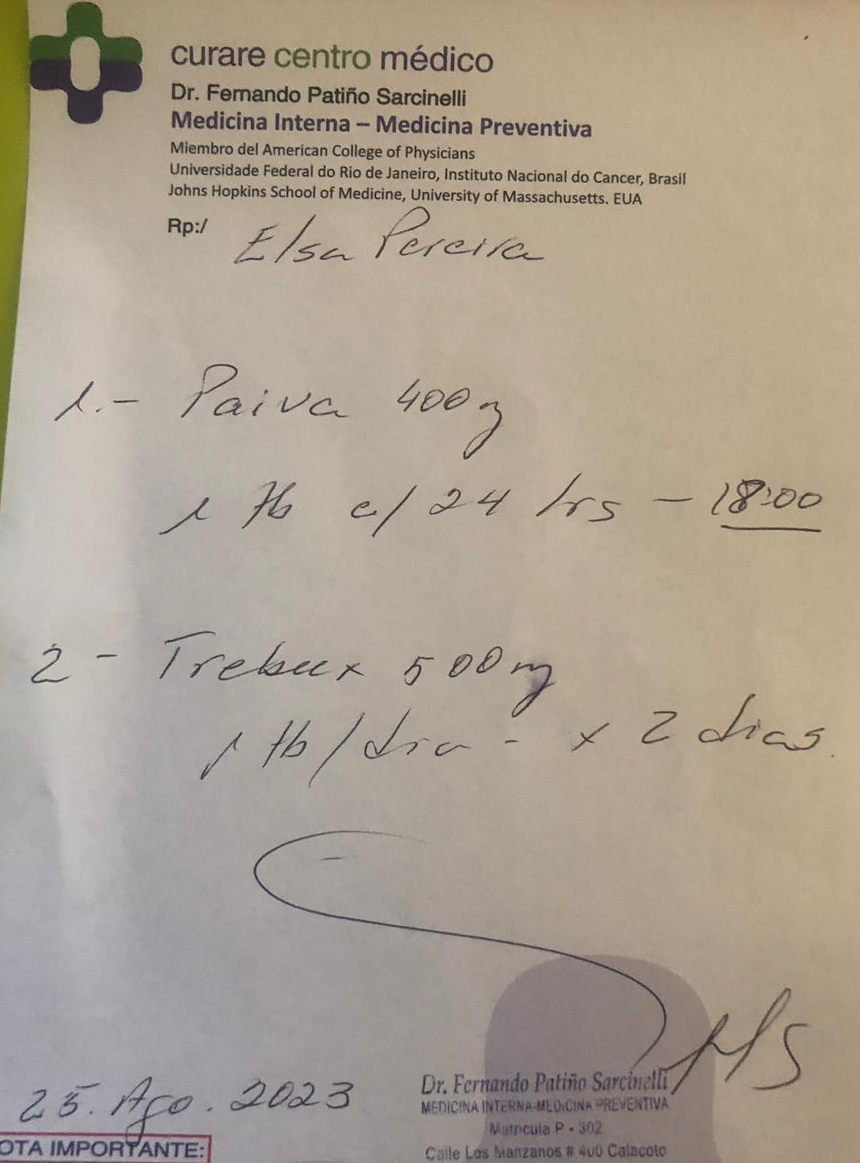 curare centro médico
Dr. Fernando Patiño Sarcinelli
Medicina Interna – Medicina Preventiva
Miembro del American College of Physicians
Universidade Federal do Rio de Janeiro, Instituto Nacional do Cancer, Brasil
Johns Hopkins School of Medicine, University of Massachusetts. EUA
Rp:/ Elsa Pereira
1.- Paiva 400 mg
1 tb c/ 24 hrs – 18:00
2 - Trebux 500 mg
1 tb/dia - x 2 dias.
Dr. Fernando Patiño Sarcinelli
MEDICINA INTERNA-MEDICINA PREVENTIVA
Matricula P - 302
Calle Los Manzanos # 400 Calacoto
25. Ago. 2023
OTA IMPORTANTE: